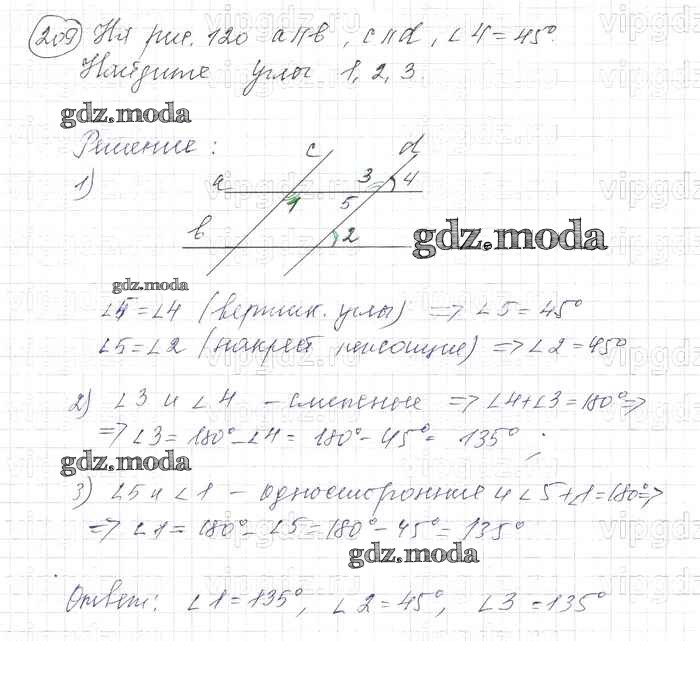 209 На рис. 120 a∥b, c∥d, ∠4=45°.
Найдите углы 1, 2, 3.
gdz.moda
Решение:
1)
c d
a 3 4
1 5
b 2
gdz.moda
gdz.moda
∠5=∠4 (вертик. углы) => ∠5=45°
∠5=∠2 (накрест лежащие) => ∠2=45°
2) ∠3 и ∠4 - смежные => ∠4+∠3=180° =>
=> ∠3=180°-∠4= 180°-45°= 135°;
gdz.moda
3) ∠5 и ∠1 - односторонние и ∠5+∠1=180° =>
=> ∠1= 180°-∠5=180°-45°=135°
gdz.moda
Ответ: ∠1=135°, ∠2=45°, ∠3=135°